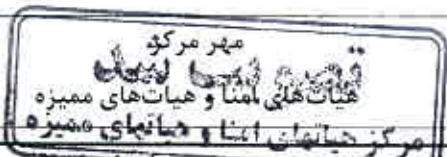 مهر مرکز
هیأت‌های امنا و هیات‌های ممیزه
مرکز هیاتهای امنا و هیاتهای ممیزه